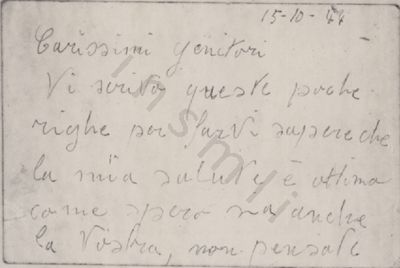 15-10-44
Carissimi genitori
Vi scrivo queste poche
righe per farvi sapere che
la mia salute è ottima
come spero sia anche
la Vostra, non pensate